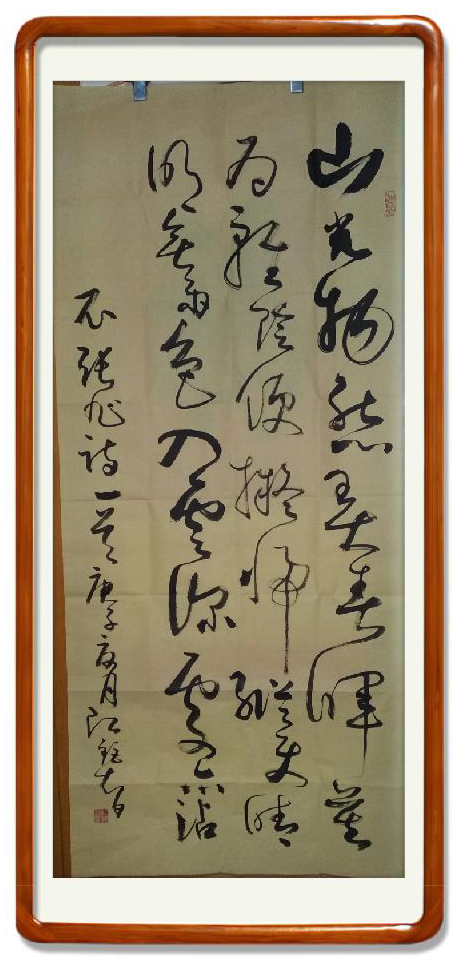 山光物態弄春暉莫
为輕陰便擬歸縱使晴
明無雨色入雲深處亦沾
衣張旭詩一首庚子夏月